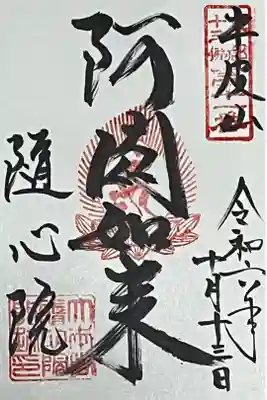 牛皮山
令和六年
十月十三日
阿閦如来
随心院